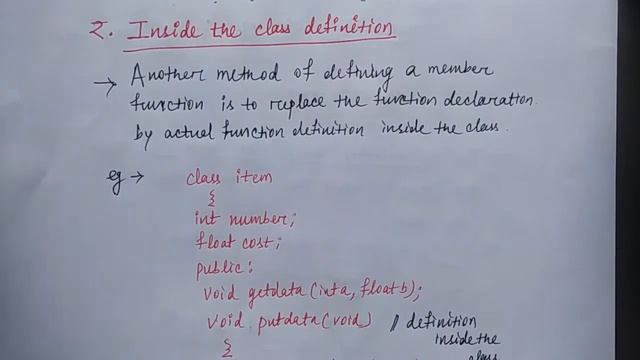 2. Inside the class definition
→ Another method of defining a member
function is to replace the function declaration
by actual function definition inside the class.
eg → class item
{
int number;
float cost;
public:
void getdata (int a, float b);
void putdata (void) // definition
inside the
{ class